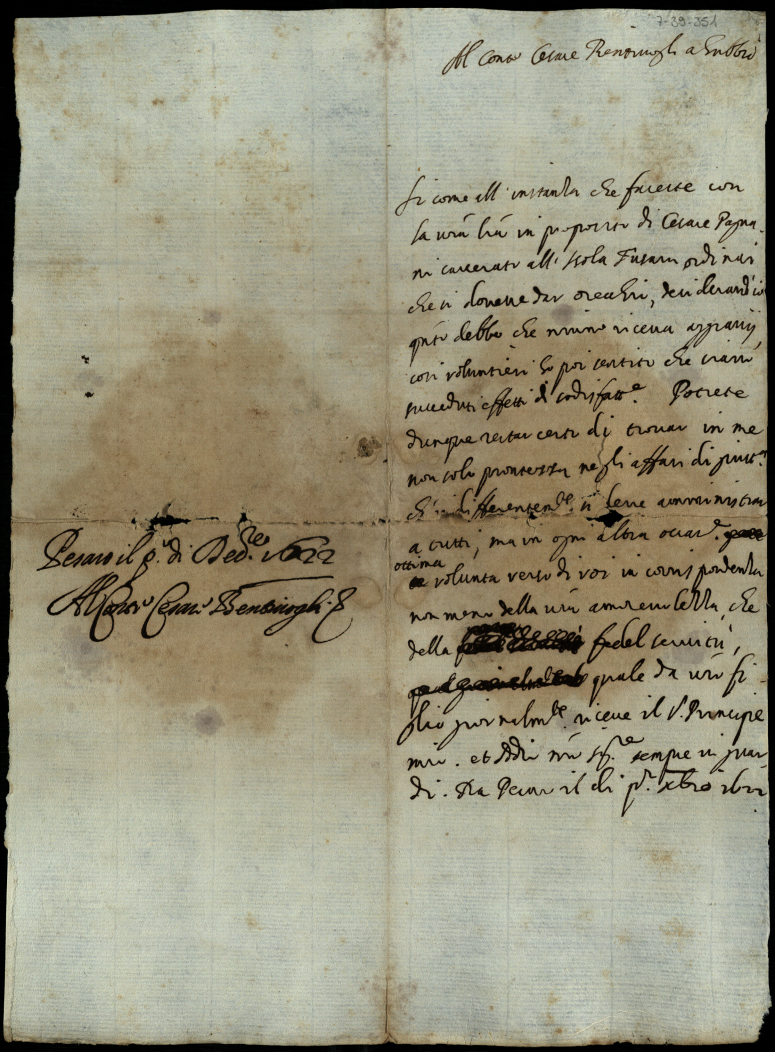 7-39-351
Al Conte Cesare Bentivogli a Gubbio
Si come all'instanza che faceste con
la vrã lrã in proposito di Cesare Pagna-
ni carcerato all' Isola Fusara ordinai
che si dovesse dar orecchio, desiderand'io
debbo che niuno riceva aggravij,
così voluntieri ho poi sentito che siano
succeduti effetti di sodisfatt.ᵉ Potrete
dunque restar certo di trovar in me
non solo prontezza negli affari di giust.ᵃ
ch' indifferentem.ᵗᵉ si deve amministrar
a tutti, ma in ogni altra occas.ᵉ
ottima
voluntà verso di voi in corrispondenza
non meno della vrã amorevolezza, che
della fedel servitù,
quale da vrõ fi-
glio giornalm.ᵗᵉ riceve il S.ʳ Principe
mio. et Iddio nrõ Sig.ʳᵉ sempre vi guar-
di. Da Pesaro il dì p.º Xbre 1622
Pesaro il p.º di Dec.ʳᵉ 1622
Al Conte Cesare Bentivogli.